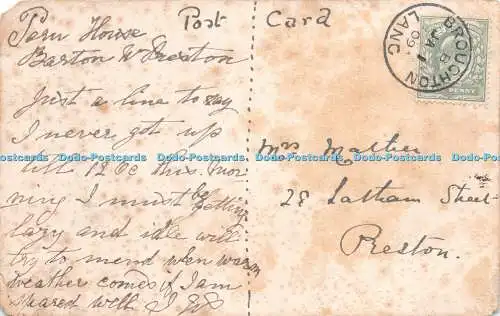 Post Card
Barton Nr Preston
Just a line to say
I never got up
till 12 60 this mor
ning I must be getting
lazy and idle will
try to mend when warm
weather comes if I am
spared well I
Mrs Mather
28 Latham Street
Preston.
BROUGHTON
LANC
JA 1
09
PENNY
Dodo-Postcards Dodo-Postcards Dodo-Postcards Dodo-Postcards Dodo-Postcards Dodo-Postcards